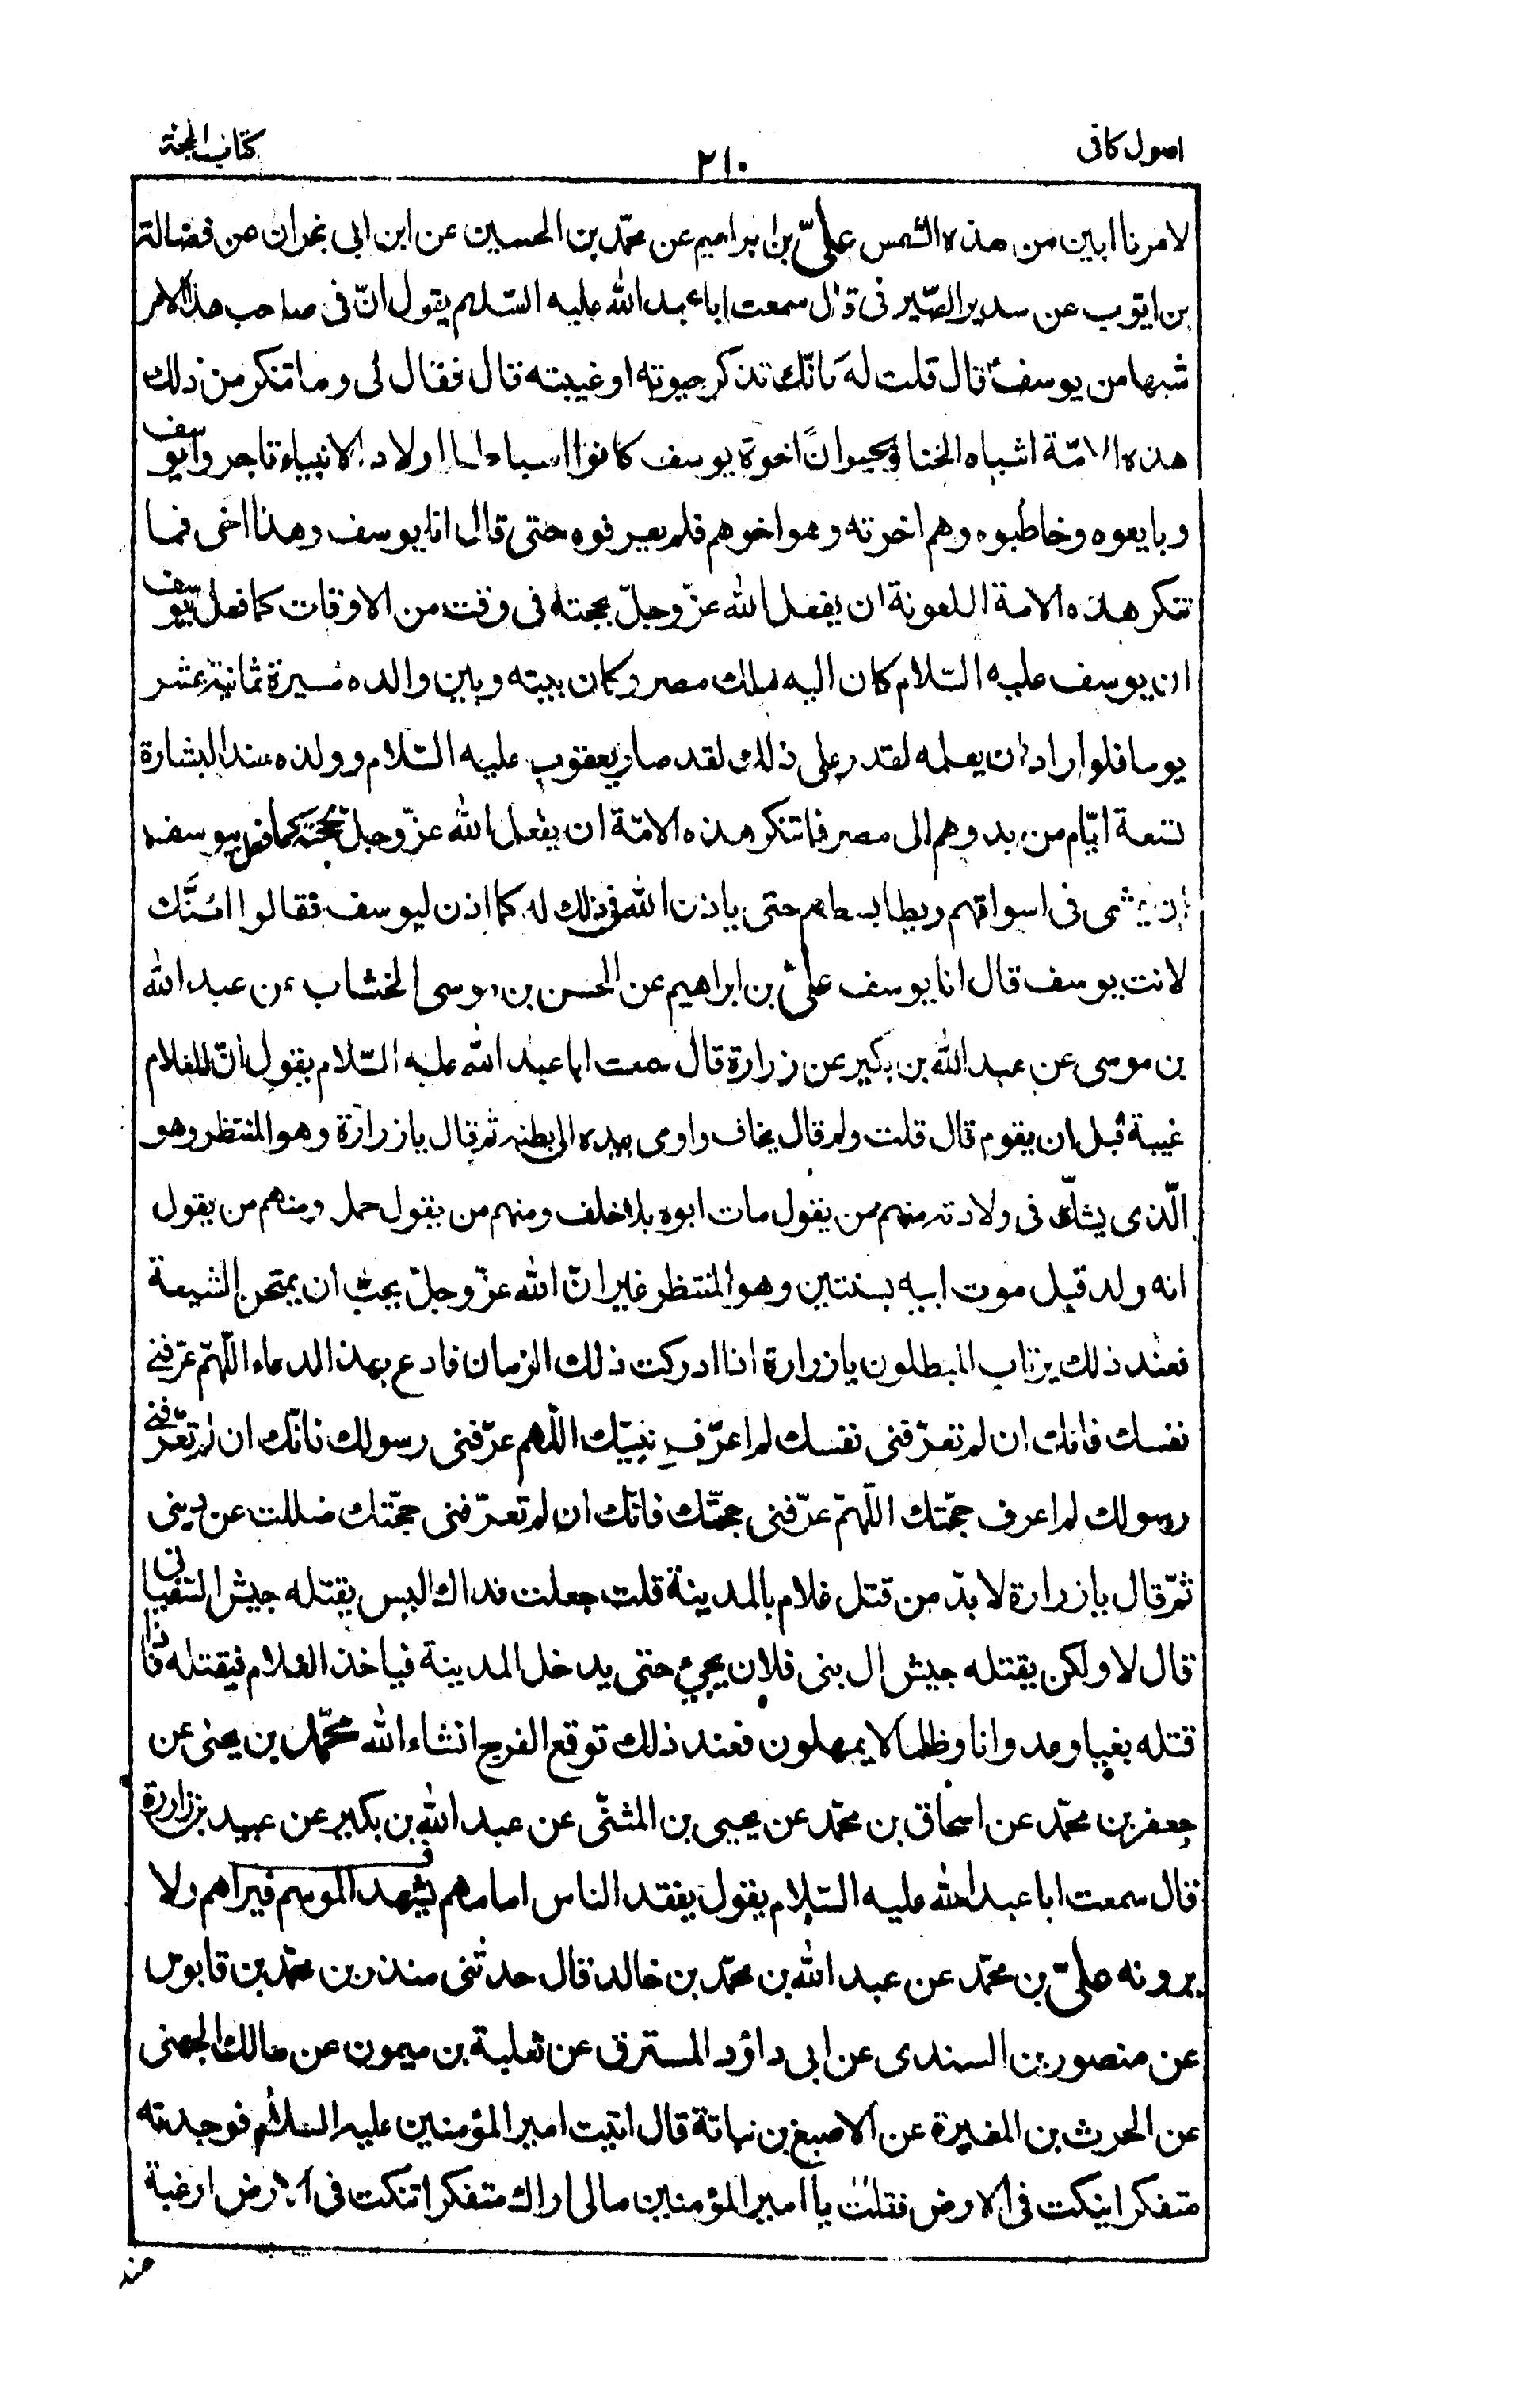 اصول كافى
٢١٠
كتاب الحجة
لامرنا ابين من هذه الشمس علىّ بن ابراهيم عن محمّد بن الحسين عن ابن ابى نجران عن فضالة
بن ايّوب عن سدير الصّيرفى قال سمعت ابا عبد الله عليه السّلام يقول انّ فى صاحب هذا الامر
شبها من يوسف قال قلت له كانّك تذكر حيوته او غيبته قال فقال لى وما تنكر من ذلك
هذه الامّة اشباه الخنازير انّ اخوة يوسف كانوا اسباطا اولاد الانبياء تاجروا يوسف
وبايعوه وخاطبوه وهم اخوته وهو اخوهم فلم يعرفوه حتى قال انا يوسف وهذا اخى فما
تنكر هذه الامة الملعونة ان يفعل الله عزّ وجلّ بحجته فى وقت من الاوقات كما فعل بيوسف
ان يوسف عليه السّلام كان اليه ملك مصر وكان بينه وبين والده مسيرة ثمانية عشر
يوما فلو اراد ان يعلمه لقدر على ذلك لقد صار يعقوب عليه السّلام وولده عند البشارة
تسعة ايّام من بدوهم الى مصر فما تنكر هذه الامّة ان يفعل الله عزّ وجلّ بحجته كما فعل بيوسف
ان يمشى فى اسواقهم ويطا بسطهم حتى ياذن الله فى ذلك له كما اذن ليوسف فقالوا ائنّك
لانت يوسف قال انا يوسف علىّ بن ابراهيم عن الحسن بن موسى الخشاب عن عبد الله
بن موسى عن عبد الله بن بكير عن زرارة قال سمعت ابا عبد الله عليه السّلام يقول انّ للغلام
غيبة قبل ان يقوم قال قلت ولم قال يخاف واومى بيده الى بطنه ثم قال يا زرارة وهو المنتظر وهو
الّذى يشكّ فى ولادته منهم من يقول مات ابوه بلا خلف ومنهم من يقول حمل ومنهم من يقول
انه ولد قبل موت ابيه بسنتين وهو المنتظر غير انّ الله عزّ وجلّ يحبّ ان يمتحن الشيعة
فعند ذلك يرتاب المبطلون يا زرارة اذا ادركت ذلك الزمان فادع بهذا الدعاء اللّهمّ عرّفنى
نفسك فانك ان لم تعرّفنى نفسك لم اعرّف نبيّك اللّهم عرّفنى رسولك فانّك ان لم تعرّفنى
رسولك لم اعرف حجّتك اللّهمّ عرّفنى حجّتك فانّك ان لم تعرّفنى حجّتك ضللت عن دينى
ثمّ قال يا زرارة لا بدّ من قتل غلام بالمدينة قلت جعلت فداك اليس يقتله جيش السّفيانى
قال لا ولكن يقتله جيش ال بنى فلان يجىء حتى يدخل المدينة فياخذ الغلام فيقتله فاذا
قتله بغيا وعدوانا وظلما لا يمهلون فعند ذلك توقع الفرج انشاء الله محمّد بن يحيى عن
جعفر بن محمّد عن اسحاق بن محمّد عن يحيى بن المثنّى عن عبد الله بن بكير عن عبيد بن زرارة
قال سمعت ابا عبد الله عليه السّلام يقول يفقد الناس امامهم فيشهد الموسم فيراهم ولا
يرونه علىّ بن محمّد عن عبد الله بن محمّد بن خالد قال حدثنى منذر بن محمّد بن قابوس
عن منصور بن السندى عن ابى داؤد المسترق عن ثعلبة بن ميمون عن مالك الجهنى
عن الحرث بن المغيرة عن الاصبغ بن نباتة قال اتيت امير المؤمنين عليه السلام فوجدته
متفكرا ينكت فى الارض فقلت يا امير المؤمنين مالى اراك متفكرا تنكت فى الارض ارغبة